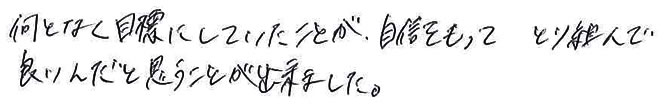 何となく目標にしていたことが、自信をもって とり組んで
良いんだと思うことが出来ました。